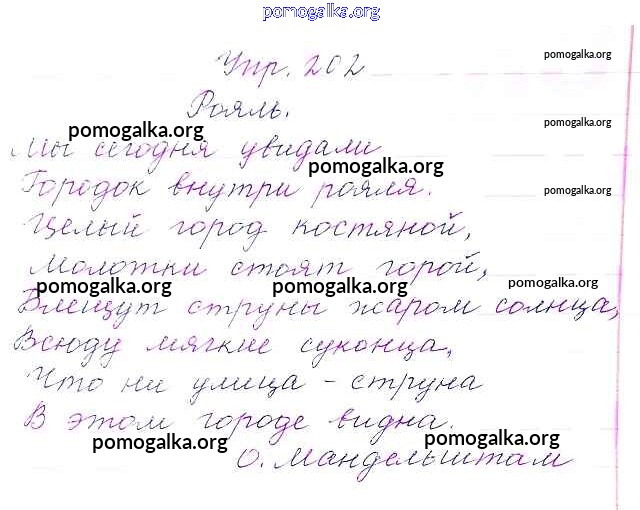 pomogalka.org
Упр. 202
pomogalka.org
Рояль.
pomogalka.org
pomogalka.org
Мы сегодня увидали
pomogalka.org
Городок внутри рояля.
pomogalka.org
Целый город костяной,
Молотки стоят горой,
pomogalka.org
pomogalka.org
pomogalka.org
Блещут струны жаром солнца,
Всюду мягкие суконца,
Что ни улица - струна
В этом городе видна.
pomogalka.org
pomogalka.org
О. Мандельштам